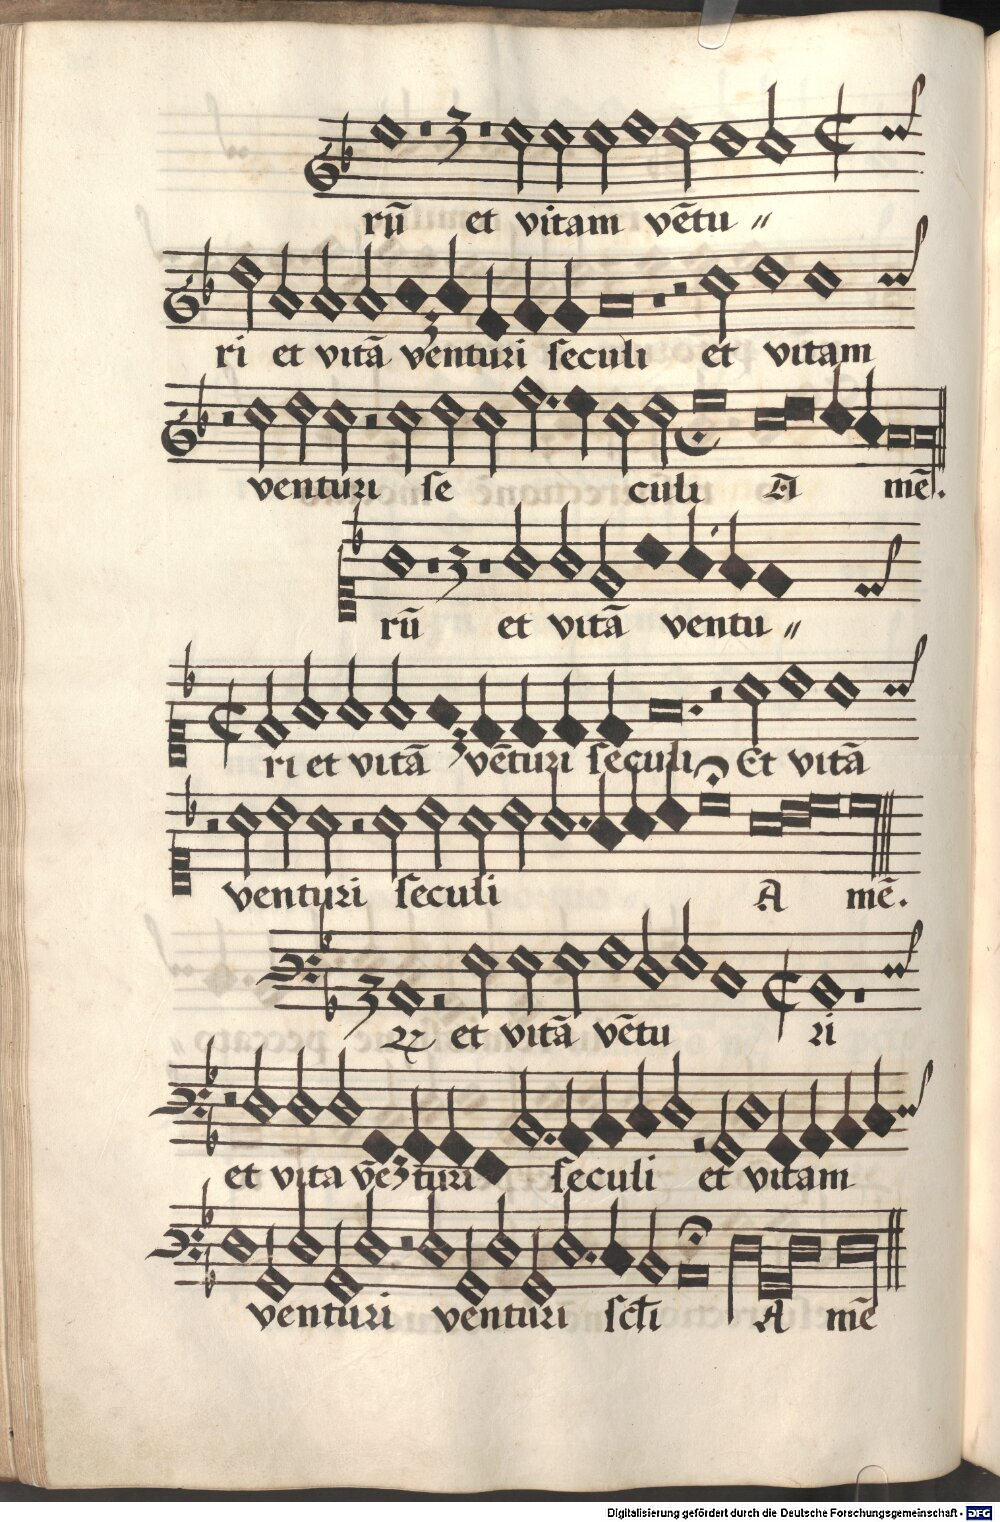 rū et vitam vētu〃
ri et vitā venturi seculi et vitam
venturi se culi Ā mē.
rū et vitā ventu〃
ri et vitā vēturi seculi Et vitā
venturi seculi A mē.
et vitā vētu ri
et vita vēturi seculi et vitam
venturi venturi A mē
Digitalisierung gefördert durch die Deutsche Forschungsgemeinschaft - DFG